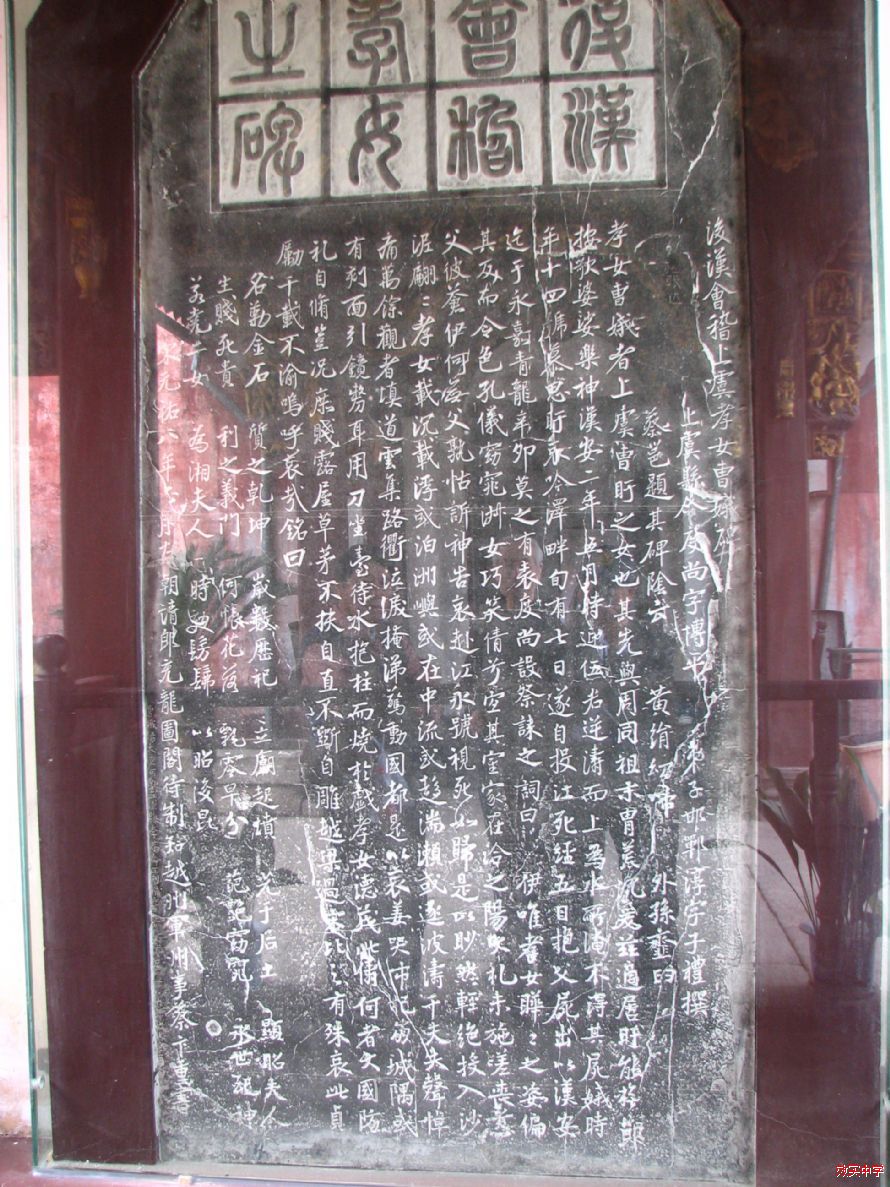 後漢
會稽
孝女
之碑
後漢會稽上虞孝女曹娥碑
上虞縣令度尚字博平 弟子邯鄲淳字子禮撰
蔡邕題其碑陰云 黃絹幼婦 外孫齏臼
孝女曹娥者上虞曹盱之女也其先與周同祖末胄荒流爰茲適居盱能撫節
按歌婆娑樂神漢安二年五月時迎伍君逆濤而上為水所淹不得其屍娥時
年十四號慕思盱哀吟澤畔旬有七日遂自投江死經五日抱父屍出以漢安
迄于永嘉青龍辛卯莫之有表度尚設祭誄之詞曰 伊唯孝女曄〻之姿偏
其反而令色孔儀窈窕淑女巧笑倩兮宜其室家在洽之陽 禮未施嗟喪蒼
父彼蒼伊何無父孰怙訴神告哀赴江永號視死如歸是以眇然輕絕投入沙
泥翩〻孝女載沉載浮或泊洲嶼或在中流或趨湍瀨或逐波濤千夫失聲悼
痛萬餘觀者填道雲集路衢泣淚掩涕驚動國都是以哀姜哭市杞崩城隅或
有剋面引鏡剺耳用刀坐臺待水抱柱而燒於戲孝女德茂此儔何者大國防
礼自脩豈況庶賤露屋草茅不扶自直不斲自雕越梁過宋比之有殊哀此貞
勵千載不渝嗚呼哀哉銘曰
名勒金石 質之乾坤 歲數歷祀 立廟起墳 光于后土 顯昭夫人
生賤死貴 利之義門 何悵花落 飄零早分 葩艷窈窕 永世配神
若堯二女 為湘夫人 時效髣髴 以昭後昆
宋元祐八年 月左朝請郎充龍圖閣待制知越州軍州事蔡卞重書
效实中学